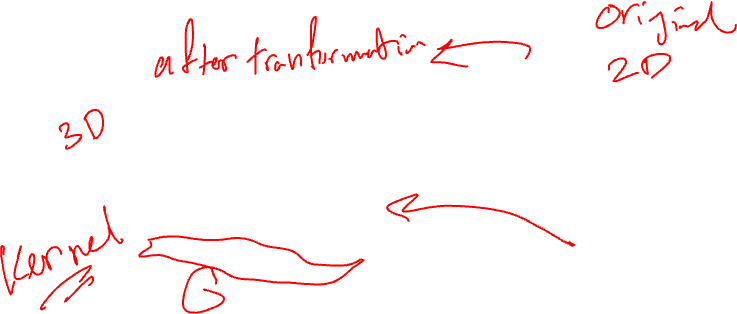 Original
2D
after tranformation
3D
Kernel
G